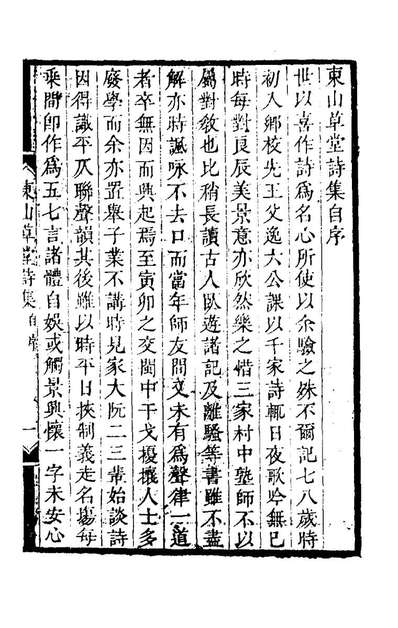 東山草堂詩集自序
世以喜作詩爲名心所使以余驗之殊不爾記七八歲時
初入鄉校先王父逸大公課以千家詩輒日夜歌吟無已
時每對良辰美景意亦欣然樂之惜三家村中塾師不以
屬對敎也比稍長讀古人臥遊諸記及離騷等書雖不盡
解亦時諷咏不去口而當年師友間文未有爲聲律一道
者卒無因而興起焉至寅卯之交閩中干戈櫌攘人士多
廢學而余亦置舉子業不講時見家大阮二三輩始談詩
因得識平仄聯聲韻其後雖以時平日挾制義走名塲每
乘間卽作爲五七言諸體自娛或觸景興懷一字未安心
東山草堂詩集
自序
一